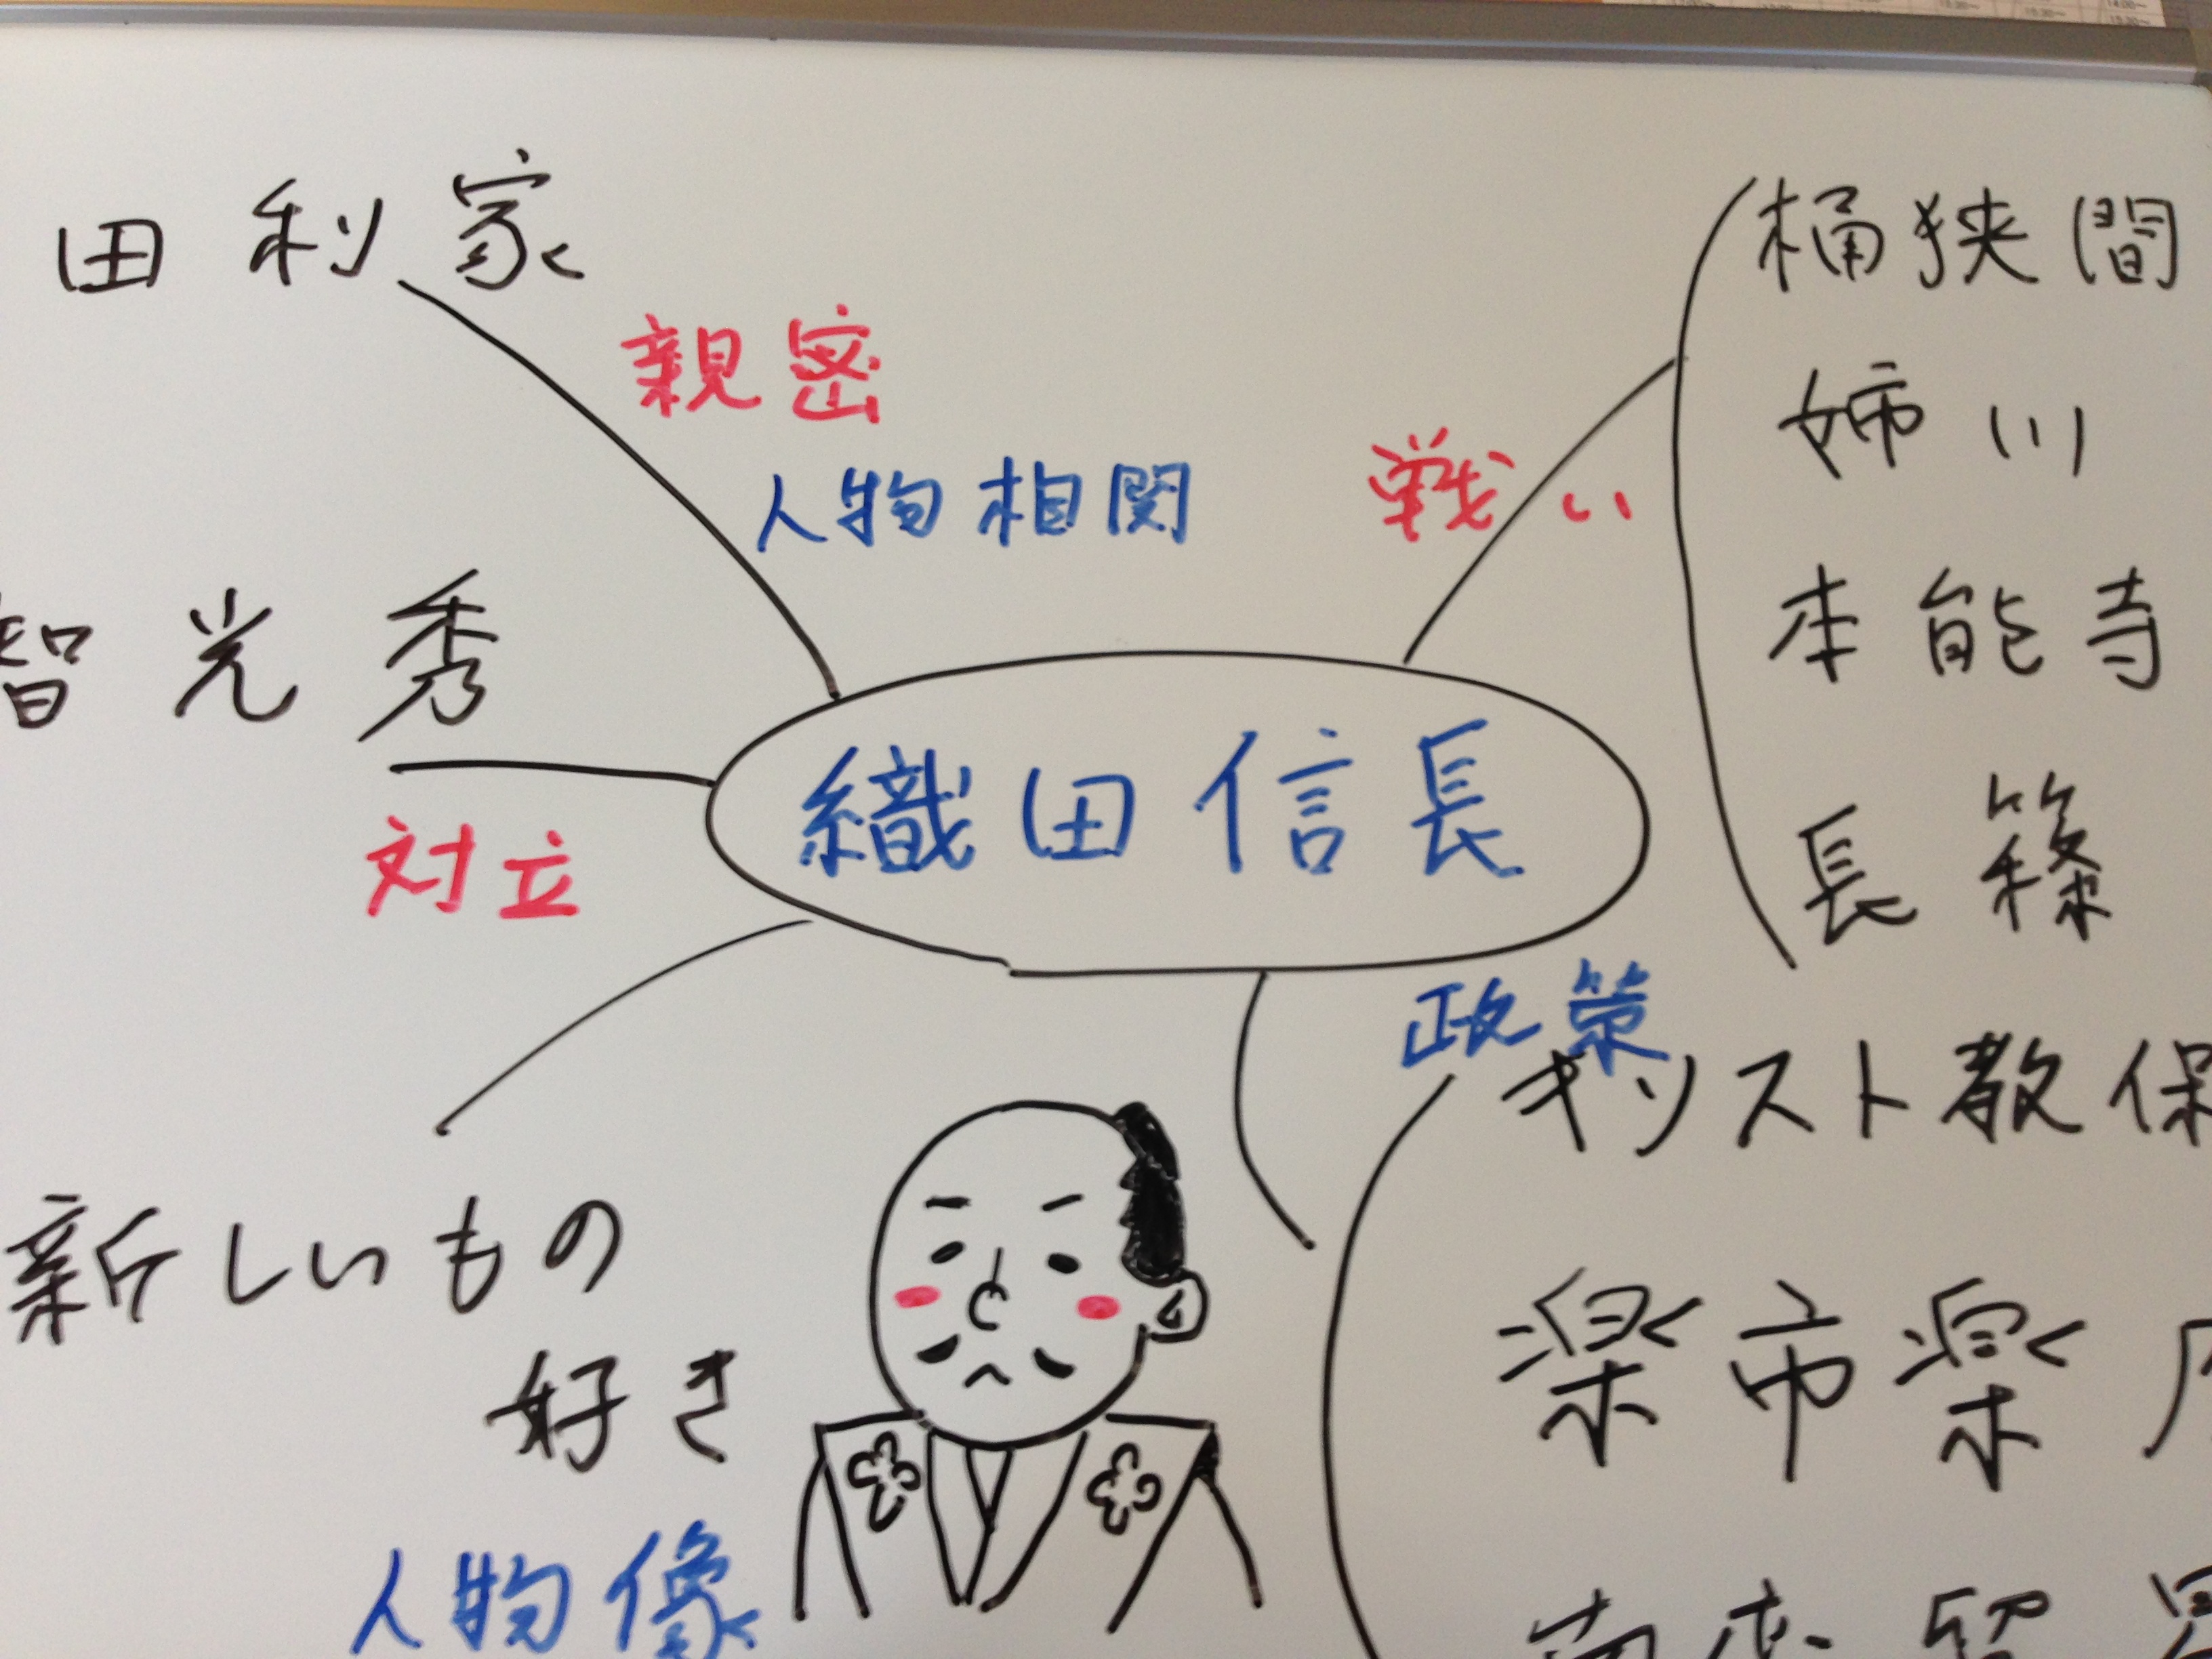 田利家
親密
人物相関
智光秀
対立
織田信長
戦い
桶狭間
姉川
本能寺
長篠
政策
キリスト教保
楽市楽
新しいもの
好き
人物像